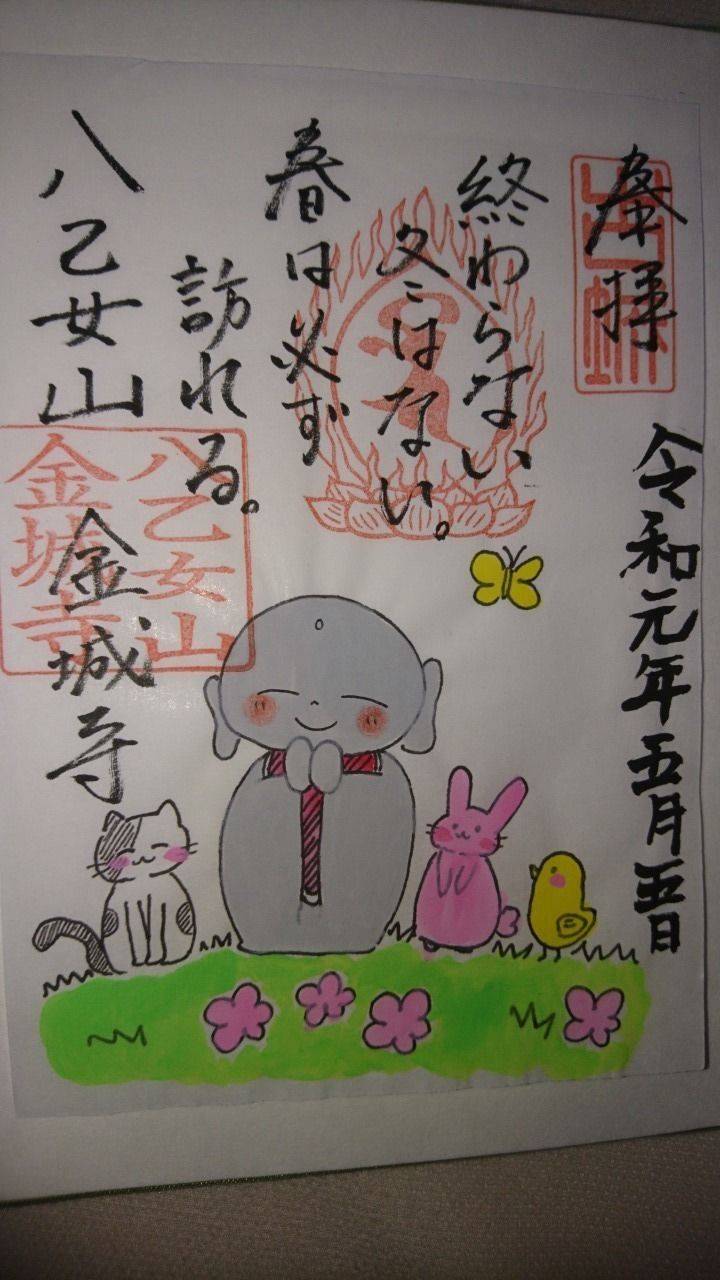 奉拝
令和元年五月五日
終わらない
冬はない。
春は必ず
訪れる。
八乙女山
金城寺
八乙女山
金城寺